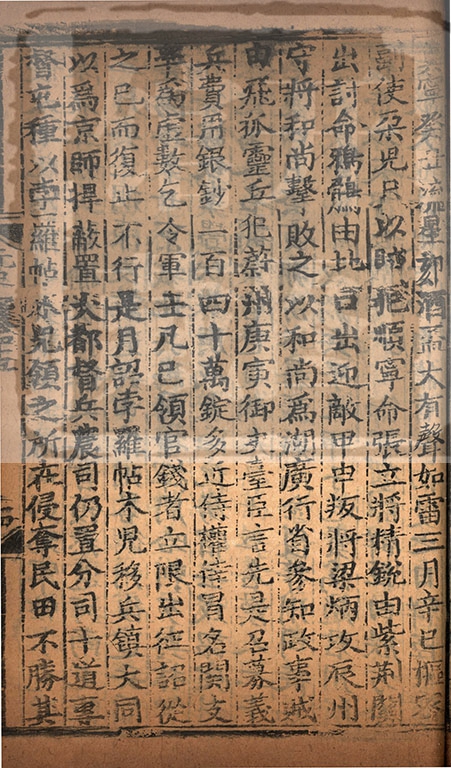 寧癸丑流星如酒盃大有聲如雷三月辛巳樞密
副使朶児只以賊犯順寧命張立將精銳由紫荆關
出討命鴉鶻由北口出迎敵甲申叛將梁炳攻辰州
守將和尚擊敗之以和尚爲湖廣行省參知政事賊
由飛狐靈丘犯蔚州庚寅御史臺臣言先是召募義
兵費用銀鈔一百四十萬錠多近侍權倖冒名関支
率爲虛數乞令軍士凡已領官錢者立限出征詔從
之已而復止不行是月詔孛羅帖木児移兵鎮大同
以爲京師捍蔽置大都督兵農司仍置分司十道專
督屯種以孛羅帖木児領之所在侵奪民田不勝其